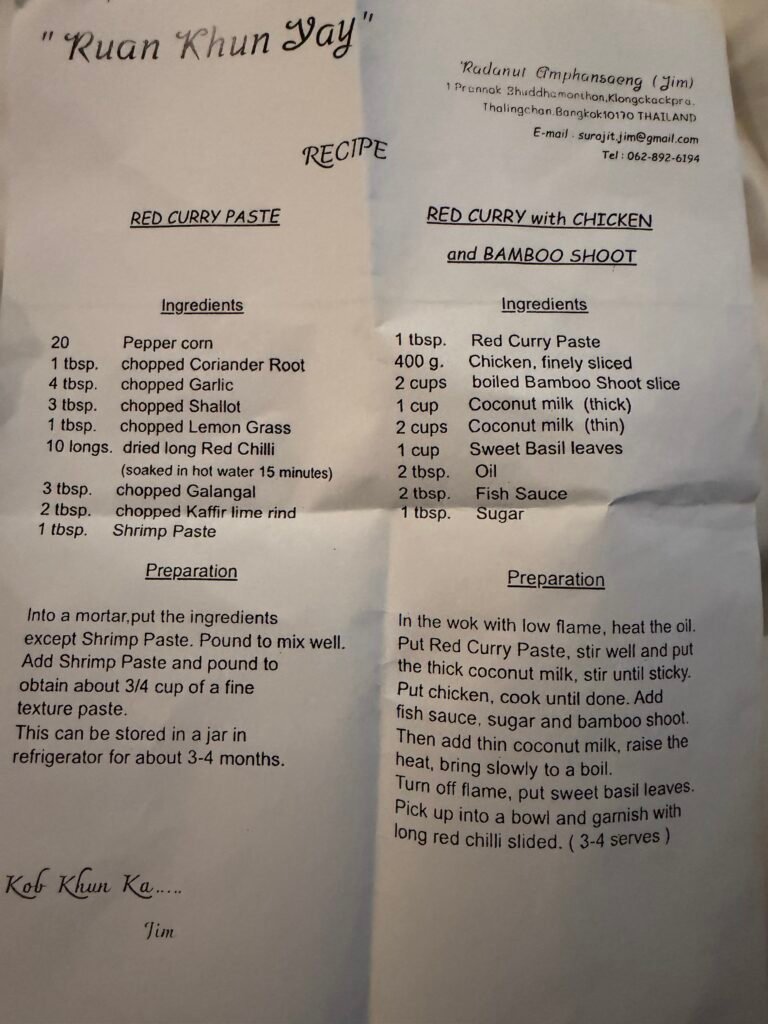 "Ruan Khun Yay"
Radanut Amphansaeng (Jim)
1 Prannok Bhuddhamonthon,Klongckackpra.
Thalingchan.Bangkok10170 THAILAND
E-mail . surajit.jim@gmail.com
Tel : 062-892-6194
RECIPE
RED CURRY PASTE
Ingredients
20 Pepper corn
1 tbsp. chopped Coriander Root
4 tbsp. chopped Garlic
3 tbsp. chopped Shallot
1 tbsp. chopped Lemon Grass
10 longs. dried long Red Chilli
(soaked in hot water 15 minutes)
3 tbsp. chopped Galangal
2 tbsp. chopped Kaffir lime rind
1 tbsp. Shrimp Paste
Preparation
Into a mortar,put the ingredients
except Shrimp Paste. Pound to mix well.
Add Shrimp Paste and pound to
obtain about 3/4 cup of a fine
texture paste.
This can be stored in a jar in
refrigerator for about 3-4 months.
Kob Khun Ka.....
Jim
RED CURRY with CHICKEN
and BAMBOO SHOOT
Ingredients
1 tbsp. Red Curry Paste
400 g. Chicken, finely sliced
2 cups boiled Bamboo Shoot slice
1 cup Coconut milk (thick)
2 cups Coconut milk (thin)
1 cup Sweet Basil leaves
2 tbsp. Oil
2 tbsp. Fish Sauce
1 tbsp. Sugar
Preparation
In the wok with low flame, heat the oil.
Put Red Curry Paste, stir well and put
the thick coconut milk, stir until sticky.
Put chicken, cook until done. Add
fish sauce, sugar and bamboo shoot.
Then add thin coconut milk, raise the
heat, bring slowly to a boil.
Turn off flame, put sweet basil leaves.
Pick up into a bowl and garnish with
long red chilli slided. ( 3-4 serves )